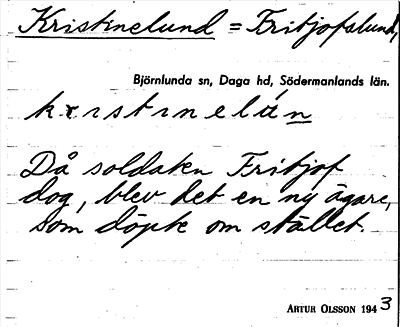 Kristinelund = Fritjofslund,
Björnlunda sn, Daga hd, Södermanlands län.
kristinelún
Då soldaten Fritjof
dog, blev det en ny ägare,
som döpte om stället.
ARTUR OLSSON 1943